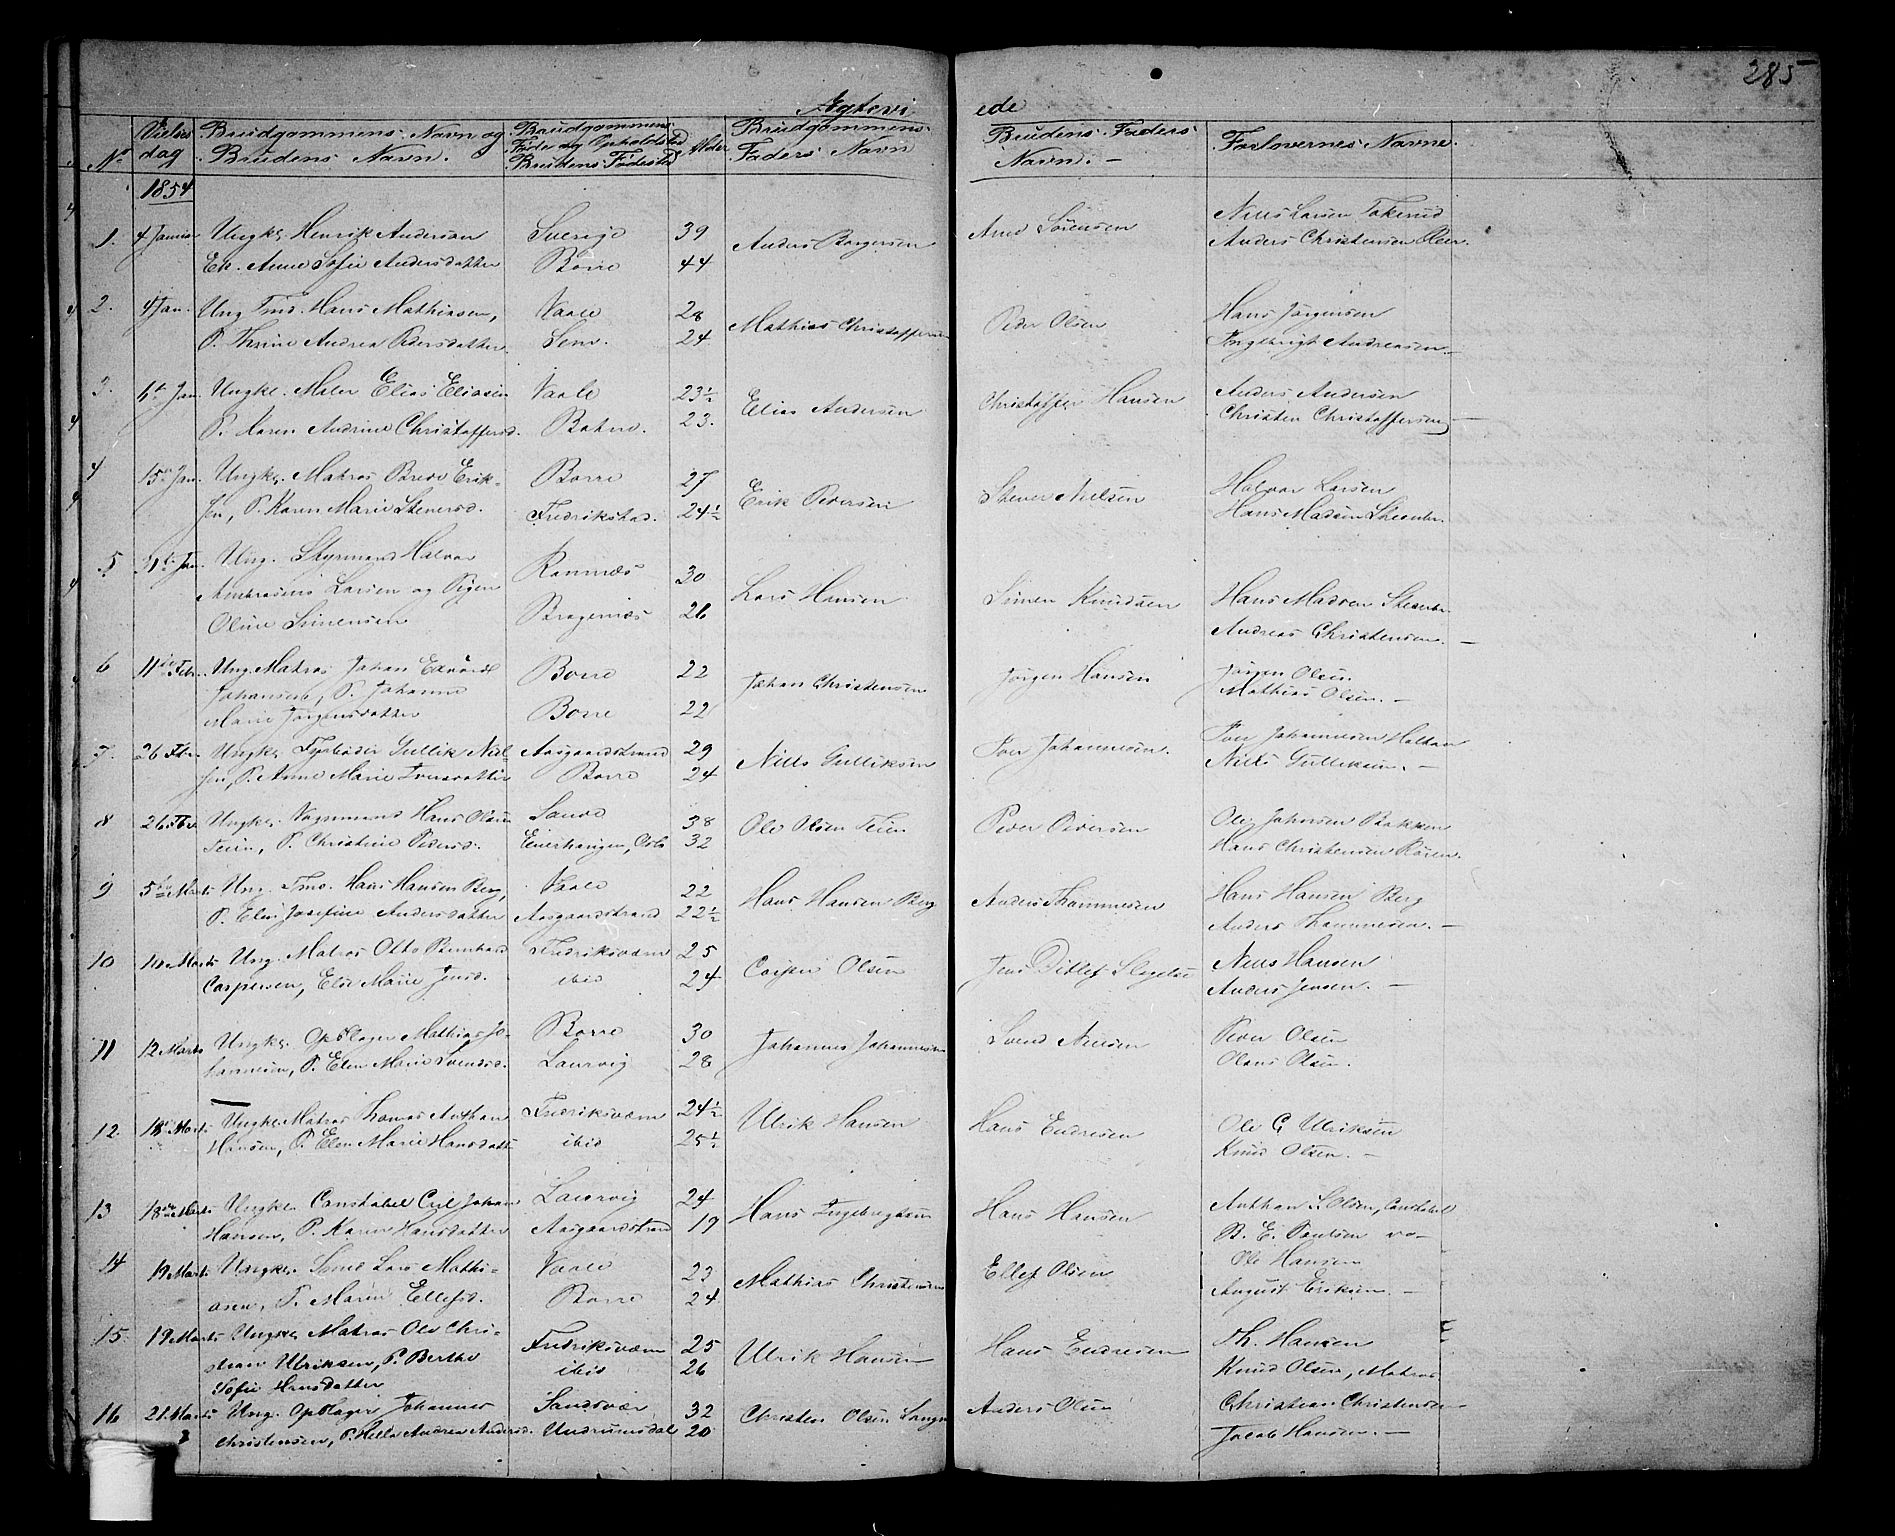 285
Ægtevi ede
No
Vielses dag
Brudgommens Navn og Brudens Navn.
Brudgommens Føde og Opholdsted Brudens Fødested
Alder
Brudgommens Faders Navn
Brudens Faders Navn. —
Forlovernes Navne.
1854
1. 4 Januar Ungk. Henrik Andersen Sverige 39 Anders Borgersen Arnd Sörensen Niels Larsen Takerud
Ek. Anne Sofie Andersdatter Borre 44 Anders Christensen
2. 4 Jan. Ung Tmd. Hans Mathiasen, Vaale 28 Mathias Christoffersen Peder Olsen Hans Jörgensen
P. Thrine Andrea Pedersdatter. Sem. 24 Ingebrigt Andreasen —
3. Jan. Ungk. Maler Elias Eliasen Vaale 23½ Elias Andersen Christoffer Hansen Anders Andersen
P. Karen Andrine Christoffersd. Botne. 23. Christen Christoffersen —
4 15de Jan. Ungk. Matros Brede Erik- Borre 27 Erik Pedersen Stener Nielsen Halvor Larsen
sen, P. Karen Marie Stenersd. Fredrikstad. 24½ Hans Madsen
5 Jan. Ung. Styrmand Halvor Ramnæs 30 Lars Hansen Simen Knudsen Hans Madsen
Ambrosius Larsen og Pigen Bragernæs 26 Andreas Christensen. —
Oline Simensen
6 11te Febr. Ung. Matros Johan Edvard Borre 22 Johan Christensen Jörgen Hansen Jörgen Olsen
Johansen, P. Johanne Borre 22 Mathias Olsen. —
Marie Jörgensdatter
7. 26 Febr. Ungk. Fyrböder Gullik Niel- Aasgaardstrand 29 Niels Gulliksen Iver Johannesen. Iver Johannesen
sen, P. Anne Marie Iversdatter Borre 24 Niels Gulliksen. —
8 26 Febr Ungk. Vognmand Hans Olsen Sande 38 Ole Olsen Teien Peder Pedersen Ole Johnsen Bakken
Teien, P. Christine Pedersd. Enerhaugen, Oslo 32 Hans Christensen
9 5te Marts Ung. Tmd. Hans Hansen Berg, Vaale 22 Hans Hansen Berg Anders Thommesen Hans Hansen Berg
P. Elen Josefine Andersdatter Aasgaardstrand 22½ Anders Thommesen. —
10 Marts Ung. Matros Otto Bernhard Fredriksværn 25 Casper Olsen Jens Ditlef Niels Hansen
Caspersen, Else Marie Jensd. ibid 24 Anders Jensen. —
11 12 Marts Ungk. Opslager Mathias Jo- Borre 30 Johannes Johannesen Svend Nielsen Peder Olsen
hannesen, P. Elen Marie Svendsd. Laurvig 28 Olaus Olsen.
12. 18 Marts Ungk. Matros Thomas Anthon Fredriksværn 24½ Ulrik Hansen Hans Endresen Ole G Ulriksen
Hansen, P. Elen Marie Hansdatt ibid 25½ Knud Olsen. —
13 18de Marts Ungk. Constabel Carl Johan Laurvig 24 Hans Ingebregtsen Hans Hansen Anthon S. Olsen, Constabel
Hansen, P. Karen Hansdatter Aasgaardstrand 19 B. E. Poulsen do —
14 19 Marts Ungk. Lars Mathi- Vaale 23 Mathias Christensen Ellef Olsen Ole Hansen
asen, P. Maren Ellefsd. Borre 24 August Eriksen. —
15. 19 Marts Ungk. Matros Ole Chri- Fredriksværn 25 Ulrik Hansen Hans Endresen Th. Hansen
stian Ulriksen, P. Berthe ibid 26 Knud Olsen, Matros
Sofie Hansdatter
16 21 Marts Ung. Opslager Johannes Sandsvær 32 Christen Olsen Anders Olsen Christian Christensen —
Christensen, P. Helle Andrea Andersd. Undrumsdal 20 Jacob Hansen. —